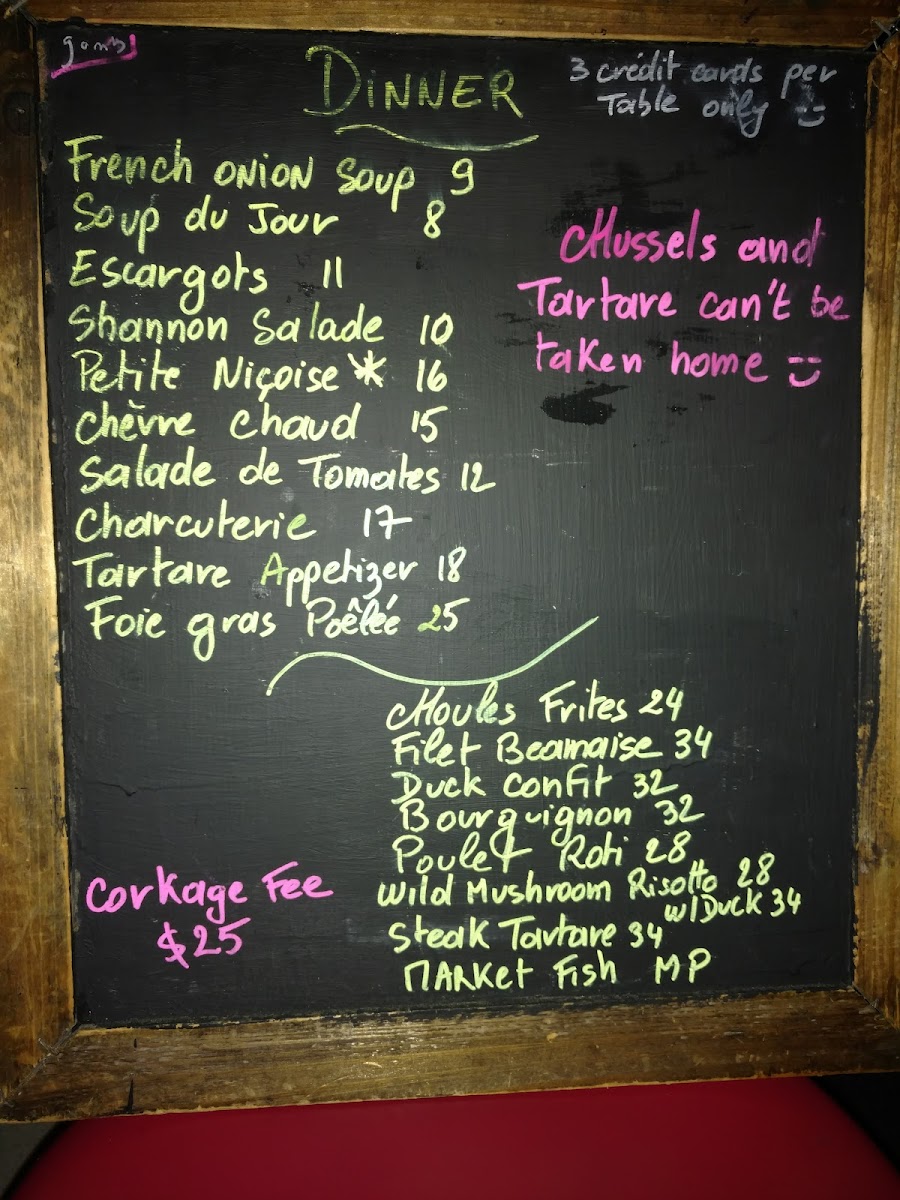 DINNER
3 crédit cards per
Table only
French ONION Soup 9
Soup du Jour 8
Escargots 11
Shannon Salade 10
Petite Niçoise* 16
Chèvre Chaud 15
Salade de Tomates 12
Charcuterie 17
Tartare Appetizer 18
Foie gras Poêléé 25
Mussels and
Tartare can't be
taken home
Moules Frites 24
Filet Bearnaise 34
Duck Confit 32
Bourguignon 32
Poulet Roti 28
Wild Mushroom Risotto 28
w/Duck 34
Steak Tartare 34
MARKet Fish MP
Corkage Fee
$25